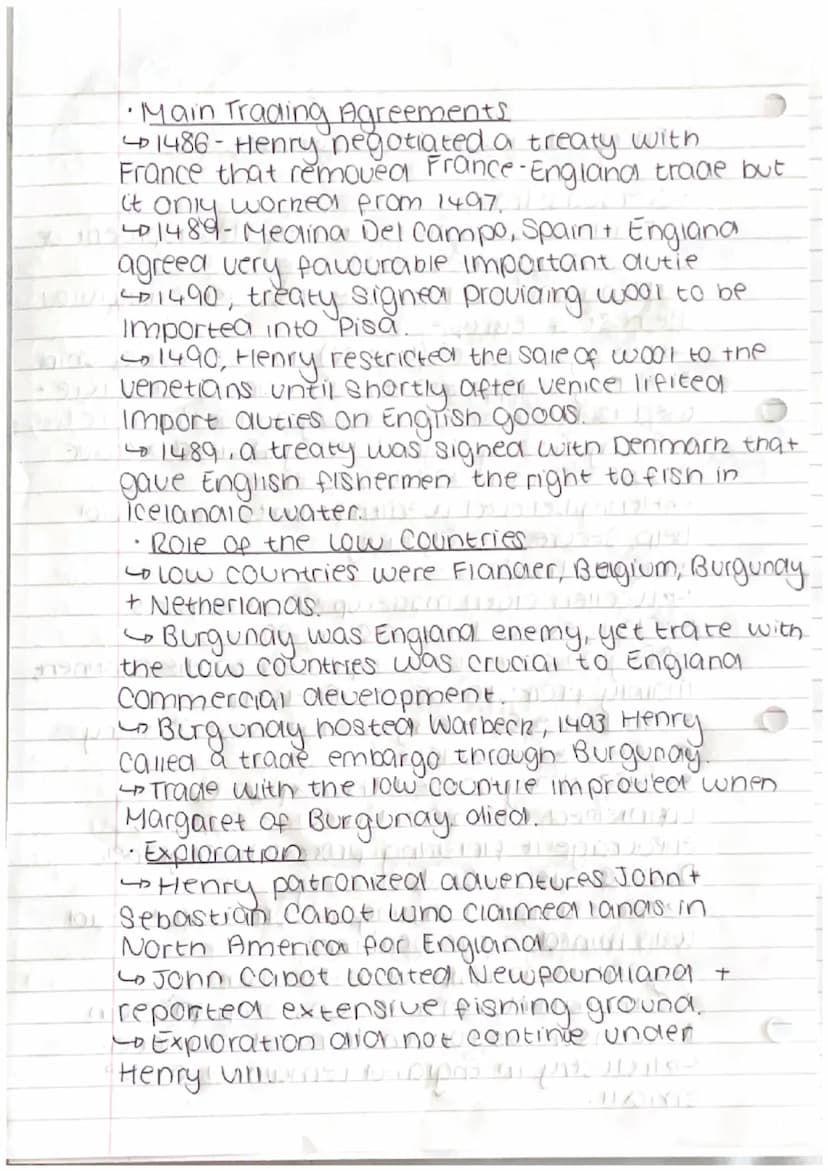 · Main Trading Agreements
↳ 1486 - Henry negotiated a treaty with
France that removed France-England trade but
it only worked from 1497.
↳ 1489 - Medina Del Campo, Spain + England
agreed very favourable important dutie
↳ 1490, treaty signed providing wool to be
imported into Pisa.
↳ 1490, Henry restricted the sale of wool to the
venetians until shortly after Venice lifited
import duties on English goods.
↳ 1489, a treaty was signed with Denmark that
gave English fishermen the right to fish in
icelandic water.
· Role of the Low Countries
↳ Low countries were Flander, Belgium, Burgunday
+ Netherlands.
↳ Burgunday was England enemy, yet trate with
the low countries was crucial to England
commercial development.
↳ Burgunday hosted Warbeck, 1493 Henry
called a trade embargo through Burgunday.
↳ Trade with the low countrie improved when
Margaret of Burgunday died.
· Exploration
↳ Henry patronized adventures John +
Sebastian Cabot who claimed lands in
North America for England.
↳ John Cabot located Newfoundland +
reported extensive fishing ground.
↳ Exploration did not continue under
Henry VIII.